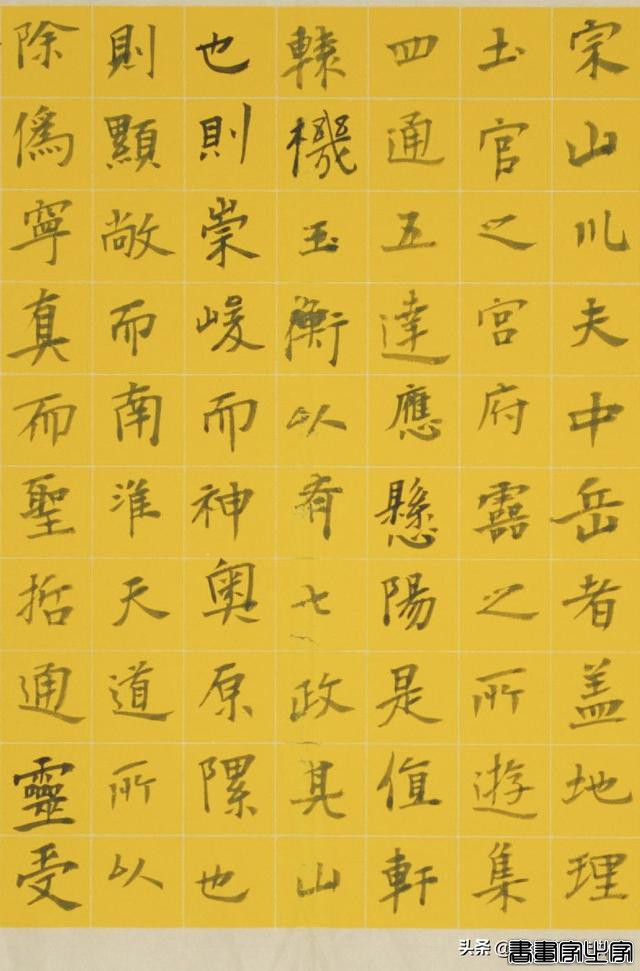 宗山川夫中岳者盖地理
土官之宫府霝之所遊集
四通五達應懸陽是值軒
轅機玉衡以齊七政其山
也則崇峻而神奥原隰也
則顯敞而南淮天道所以
除僞寧真而聖哲通靈受
头条 @
書畫家